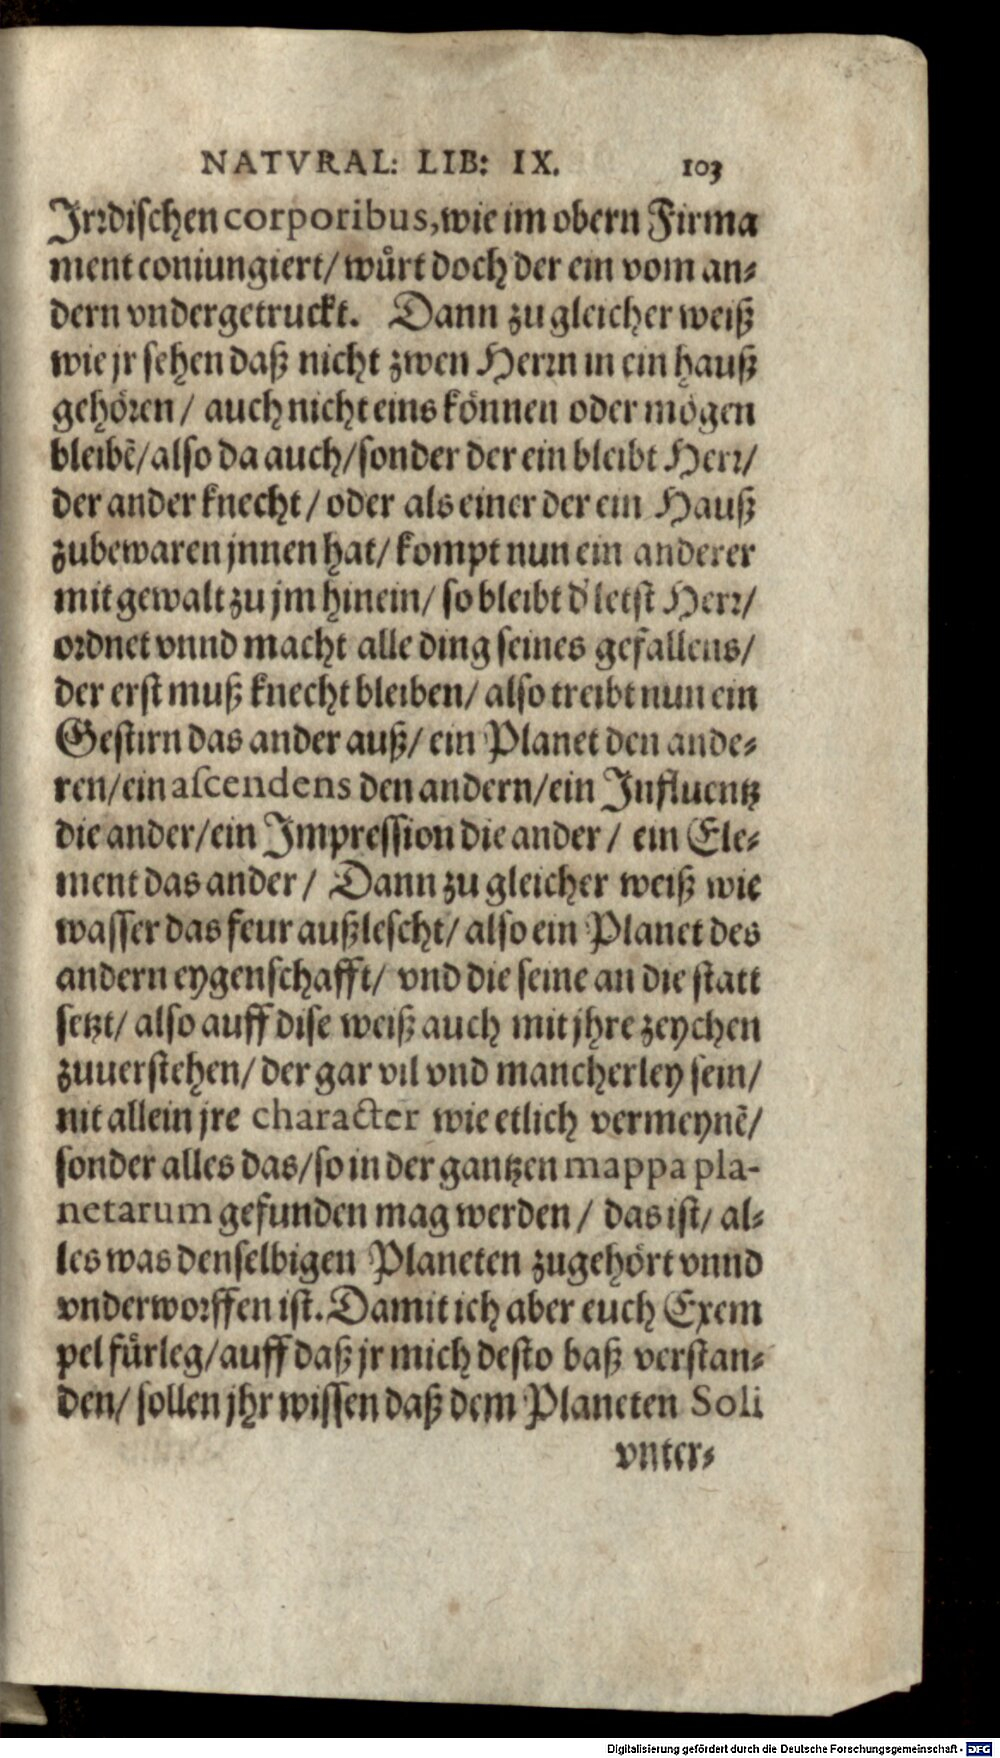 NATVRAL: LIB: IX. 103
Jrrdischen corporibus, wie im obern Firma
ment coniungiert/ wůrt doch der ein vom an-
dern vndergetruckt. Dann zu gleicher weiß
wie jr sehen daß nicht zwen Herrn in ein hauß
gehören/ auch nicht eins können oder mögen
bleibẽ/ also da auch/ sonder der ein bleibt Herr/
der ander knecht/ oder als einer der ein Hauß
zubewaren jnnen hat/ kompt nun ein anderer
mit gewalt zu jm hinein/ so bleibt d' letst Herr/
ordnet vnnd macht alle ding seines gefallens/
der erst muß knecht bleiben/ also treibt nun ein
Gestirn das ander auß/ ein Planet den ande-
ren/ ein ascendens den andern/ ein Jnfluentz
die ander/ ein Jmpression die ander/ ein Ele-
ment das ander/ Dann zu gleicher weiß wie
wasser das feur außlescht/ also ein Planet des
andern eygenschafft/ vnd die seine an die statt
setzt/ also auff dise weiß auch mit jhre zeychen
zuuerstehen/ der gar vil vnd mancherley sein/
nit allein jre character wie etlich vermeynẽ/
sonder alles das/ so in der gantzen mappa pla-
netarum gefunden mag werden/ das ist/ al-
les was denselbigen Planeten zugehört vnnd
vnderworffen ist. Damit ich aber euch Exem
pel fůrleg/ auff daß jr mich desto baß verstan-
den/ sollen jhr wissen daß dem Planeten Soli
vnter-
Digitalisierung gefördert durch die Deutsche Forschungsgemeinschaft - DFG